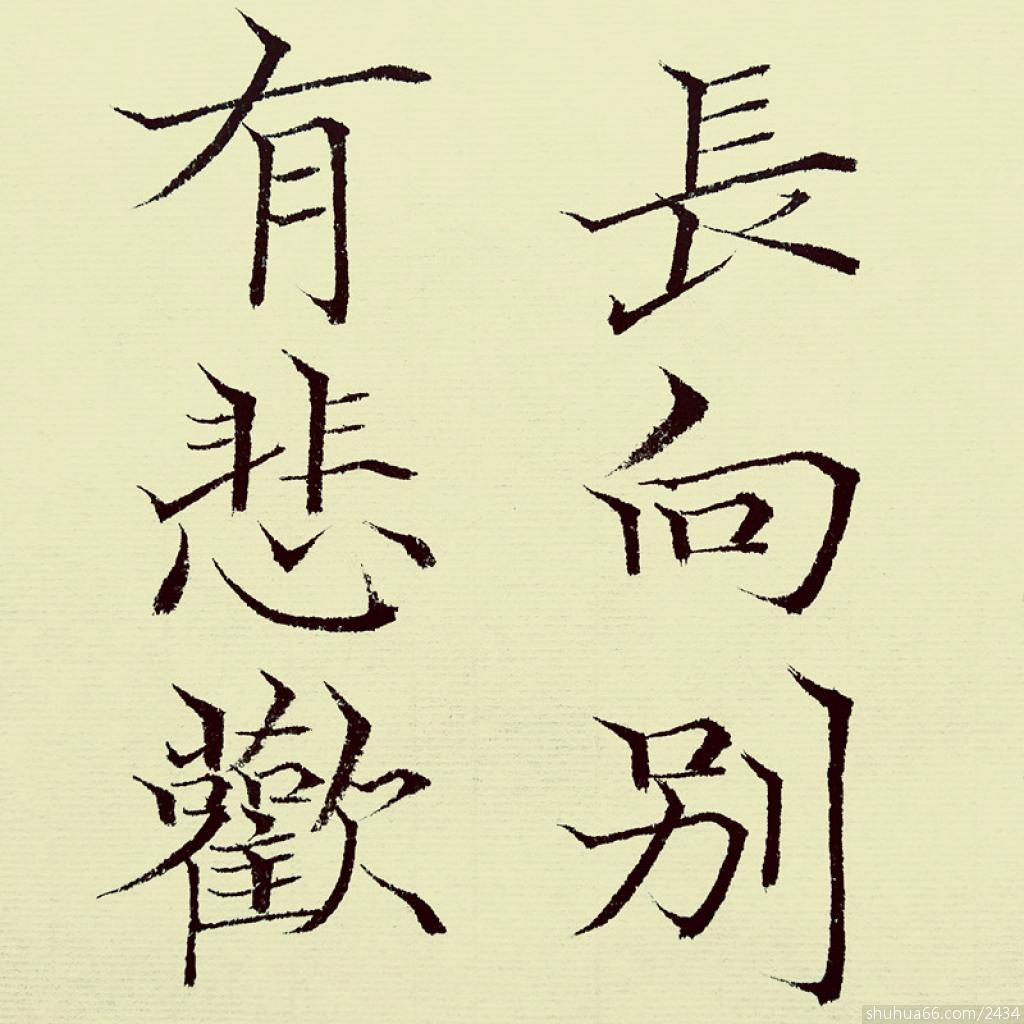 長向别
有悲歡
shuhua66.com/2434